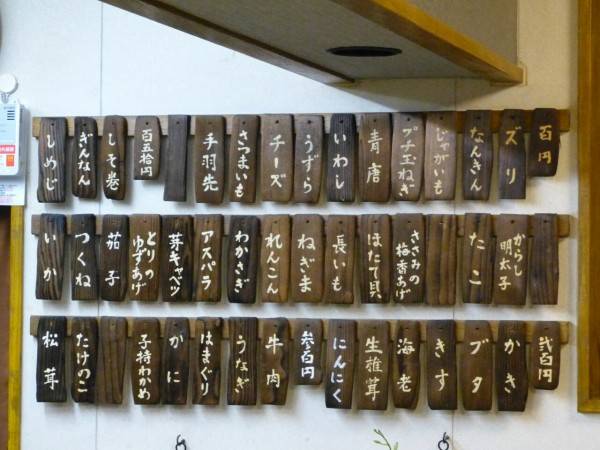 百円
ズリ
なんきん
じゃがいも
プチ玉ねぎ
青唐
いわし
うずら
チーズ
さつまいも
手羽先
百五拾円
しそ巻
ぎんなん
しめじ
からし明太子
たこ
ささみの梅香あげ
ほたて貝
長いも
ねぎま
れんこん
わかさぎ
アスパラ
芽キャベツ
とりのゆずあげ
茄子
つくね
いか
弐百円
かき
ブタ
きす
海老
生椎茸
にんにく
参百円
牛肉
うなぎ
はまぐり
かに
子持わかめ
たけのこ
松茸